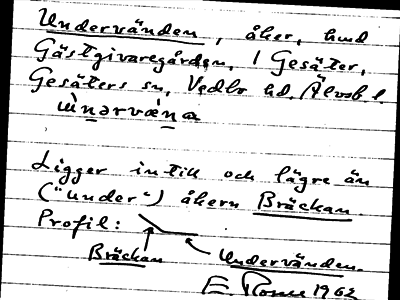 Undervänden, åker, hmd
Gästgivaregården, 1 Gesäter,
Gesäters sn, Vedbo hd. Älvsb l.
Ligger intill och lägre än
("under") åkern Bräckan
Profil:
Bräckan Undervänden.
E 1962